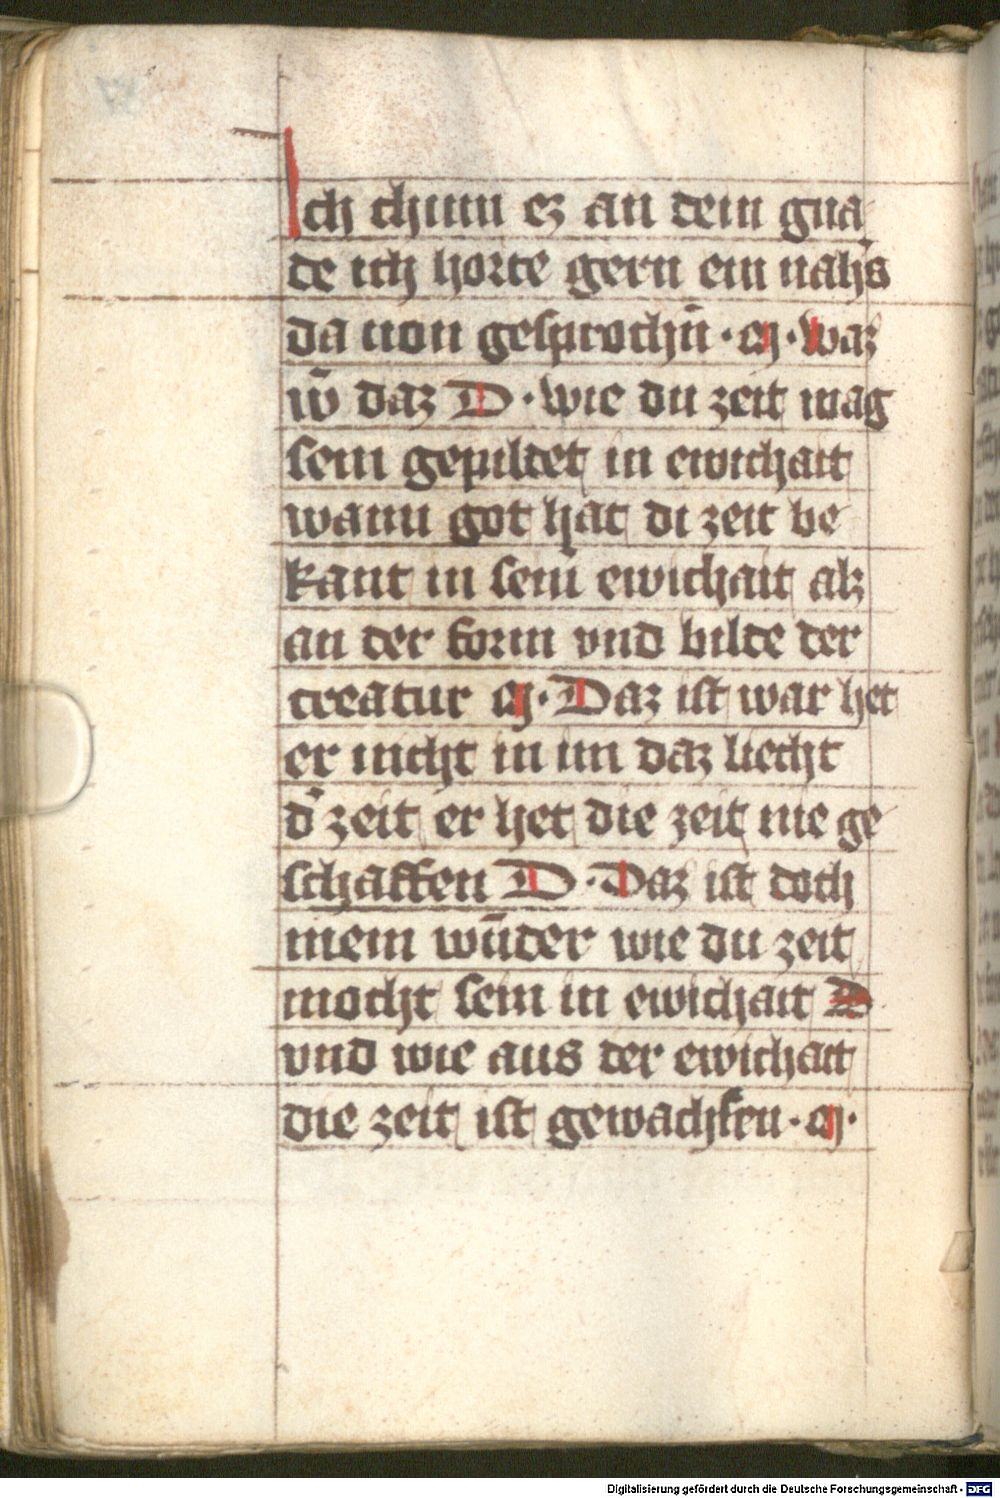 Ich chum ez an dein gna
de ich horte gern ein nahs
da uon gesprochn̄ · M · Waz
w̄ daz D · wie du zeit mag
sein gepildet in ewichait
wann got hat di zeit be
kant in sein̄ ewichait alz
an der form vnd bilde der
creatur M · Daz ist war het
er nicht in im daz liecht
d' zeit er het die zeit nie ge
schaffen D · Daz ist doch
mein wūder wie du zeit
mocht sein in ewichait
vnd wie aus der ewichait
die zeit ist gewachsen · M ·
Digitalisierung gefördert durch die Deutsche Forschungsgemeinschaft - DFG